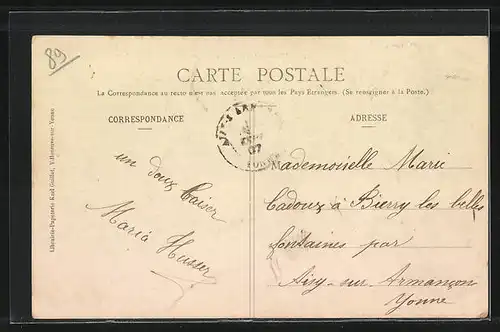 89
CARTE POSTALE
La Correspondance au recto n'est pas acceptée par tous les Pays Étrangers. (Se renseigner à la Poste.)
CORRESPONDANCE
ADRESSE
un doux baiser
Maria Husser
Mademoiselle Marie
Cadoux à Bierry les belles
fontaines par
Aisy-sur-Armançon
Yonne
07
YONNE
Librairie-Papeterie Karl Guillot, Villeneuve-sur-Yonne